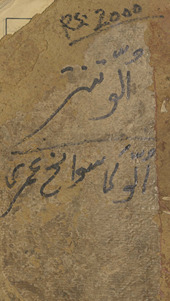 RS: 2000
اُلّو تنتر
اُلّو کا سوانح عمری